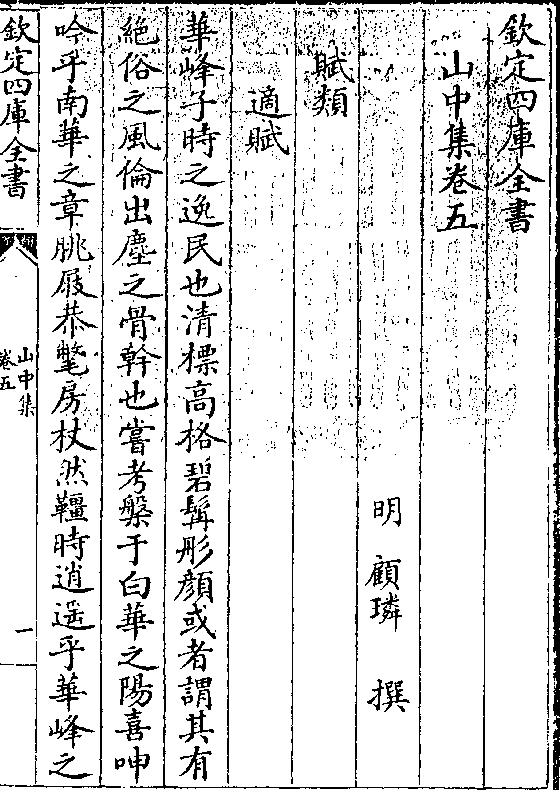 欽定四庫全書
山中集卷五
明 顧璘 撰
賦類
適賦
華峰子時之逸民也清標高格碧髯彤顔或者謂其有
絶俗之風倫出塵之骨幹也嘗考槃于白華之陽喜呻
吟乎南華之章脁屐恭氅房杖然韁時逍遥乎華峰之
欽定四庫全書
山中集
卷五
一